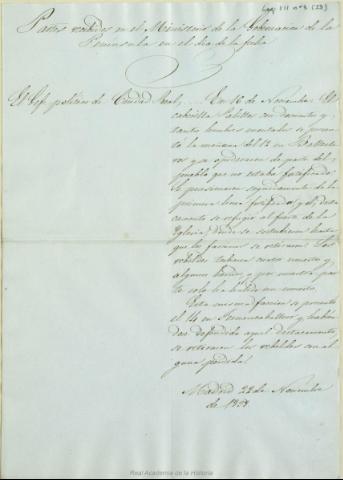 Leg. III nº 8 (23)
Partes recibidos en el Ministerio de la Gobernacion de la
Peninsula en el dia de la fecha
El Gefe politico de Ciudad Real, .... En 16 de Noviembre. El
cabecilla Palillos con doscientos y
tantos hombres montados se presen
tó la mañana del 12 en Balleste
ros y se apoderaron de parte del
pueblo que no estaba fortificado.
Se posesionaron seguidamente de la
primera linea fortificada, y el desta
camento se refugió al fuerte de la
Iglesia, donde se sostubieron hasta
que los facciosos se retiraron. Los
rebeldes tubieron cuatro muertos y
algunos heridos, y por nuestra par
te solo ha habido un muerto.
Esta misma faccion se presentó
el 14 en Fernancaballero y habien
dose defendido aquel destacamento,
se retiraron los rebeldes con al
guna perdida.
Madrid 22 de Noviembre
de
Real Academia de la Historia